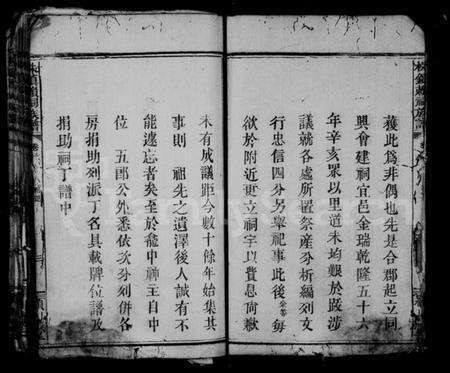 獲此為非偶也先是合郡起立同
興會建祠宜邑金瑞乾隆五十六
年辛亥眾以里道未均艱於跋涉
議就各處所置祭產分析編列文
行忠信四分另舉祀事此後劵等每
欲於附近更立祠宇以貲息尚歉
未有成議距今數十餘年始集其
事則　祖先之遺澤後人誠有不
能遽忘者矣至於龕中神主自中
位　五郎公外悉依次分列併各
房捐助列派丁名具載牌位譜及
捐助祠丁譜中